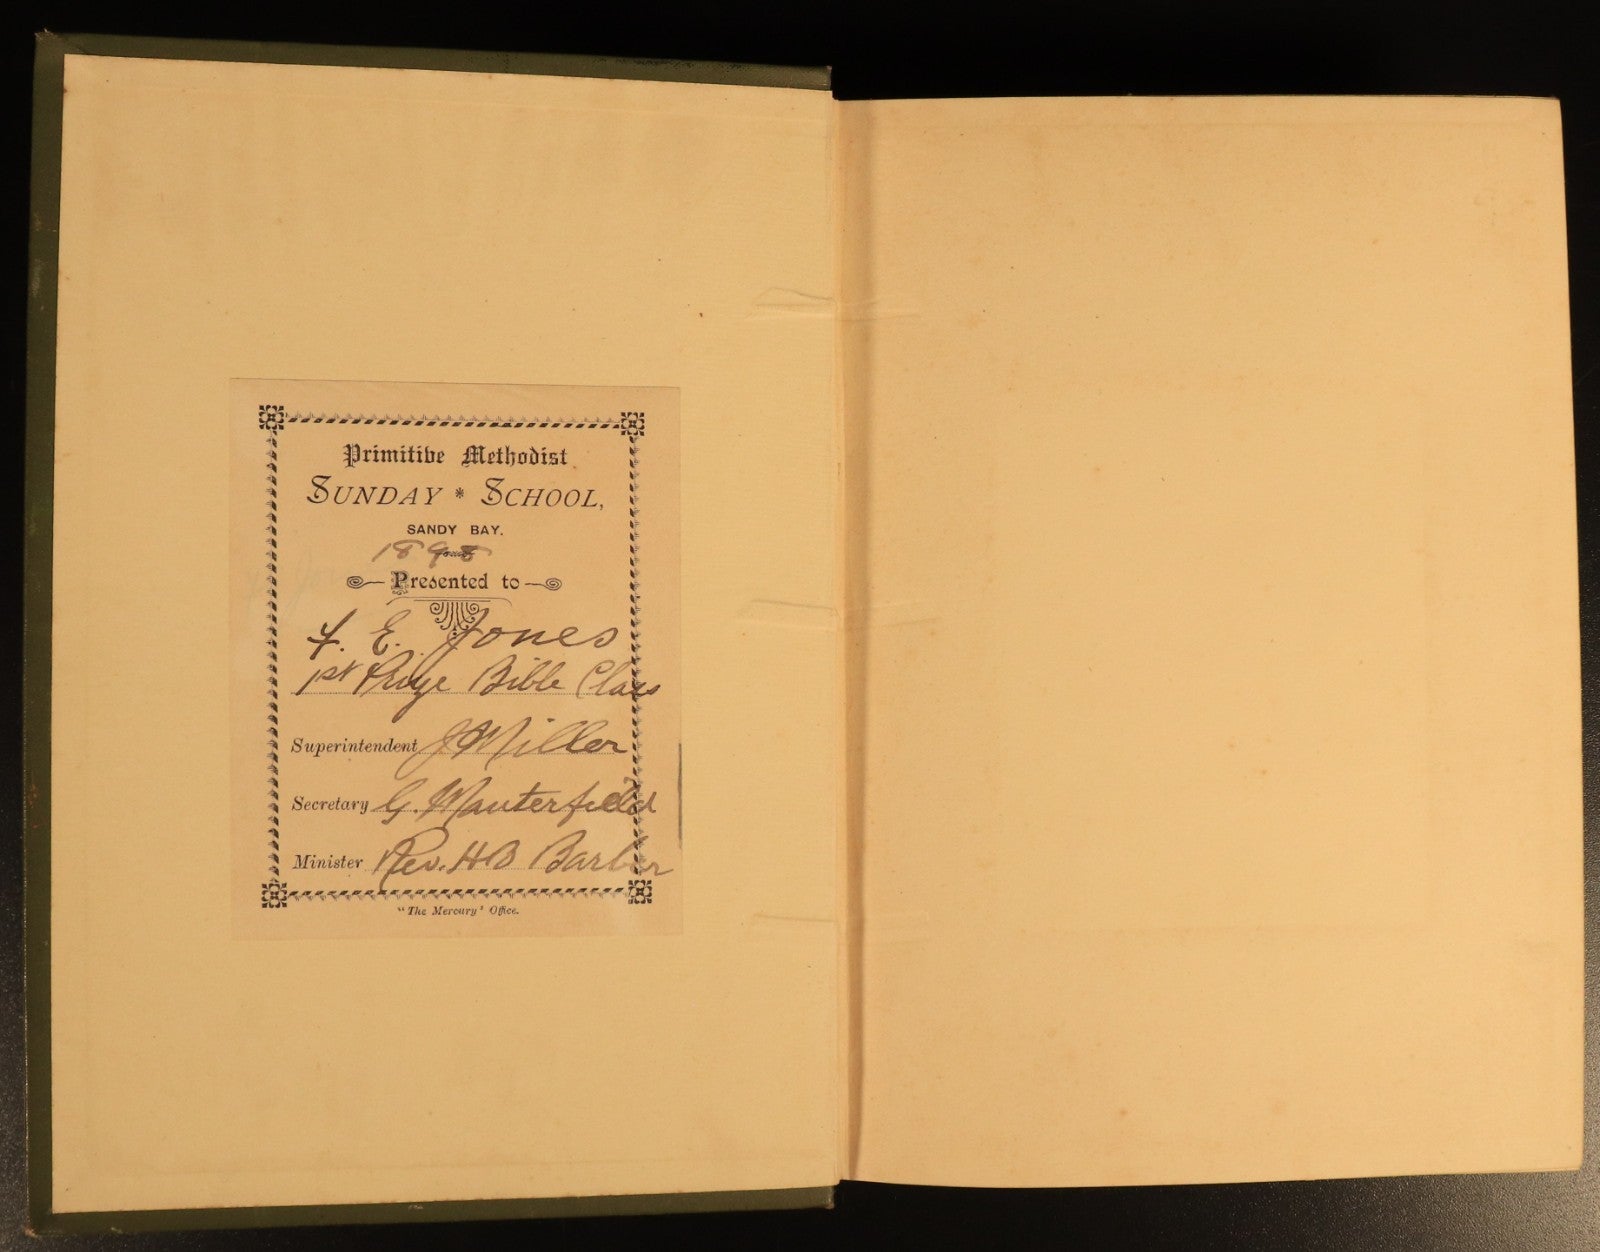 Primitive Methodist
SUNDAY * SCHOOL,
SANDY BAY.
1898
Presented to
E. Jones
1st Prize Bible Class
Superintendent J Miller
Secretary G. Manterfield
Minister Rev. H B Barber
"The Mercury' Office.